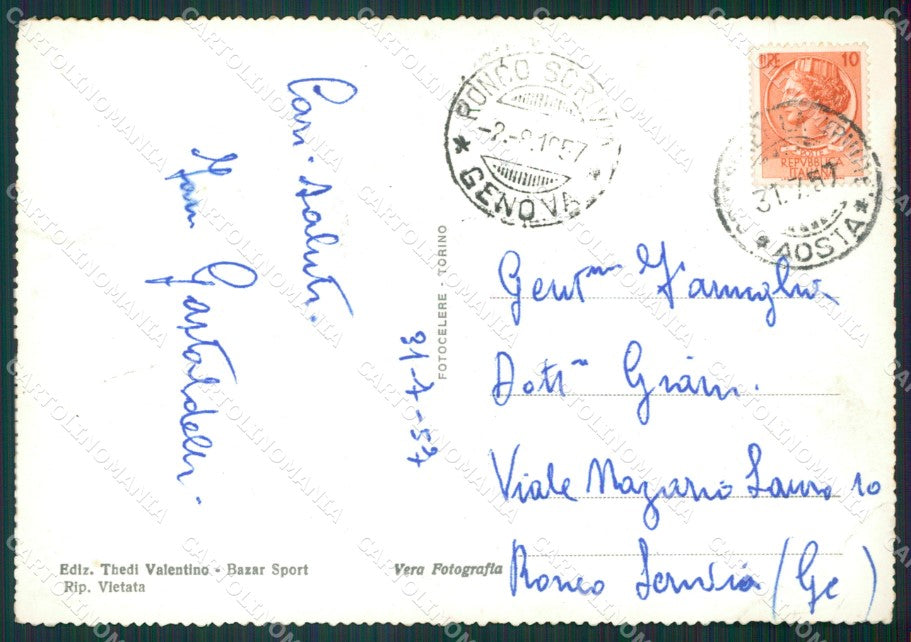 Cari saluti.
Fam Gastaldelli.
31-7-57
FOTOCELERE - TORINO
RONCO SCRIVIA
-2.-8.1957
* GENOVA *
LIRE 10
POSTE
REPUBBLICA
ITALIANA
31.7.57
* AOSTA *
Gent.ma Famiglia
Dott. Giàni.
Viale Nazario Sauro 10
Ronco Scrivia (Ge)
Ediz. Thedi Valentino - Bazar Sport
Rip. Vietata
Vera Fotografia
CARTOLINOMANIA